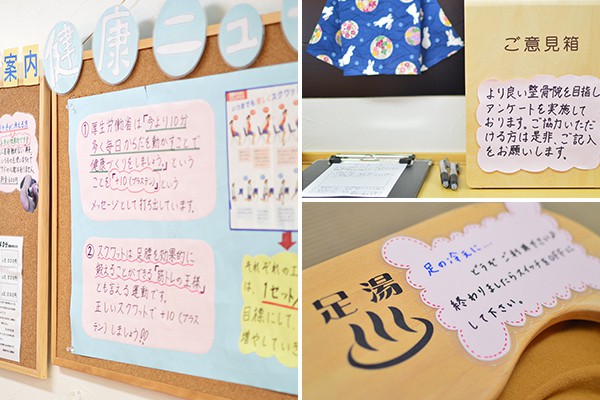 案内
健康ニュー
①厚生労働省は「今より10分
多く毎日からだを動かすことで
健康づくりをしましょう。」という
ことを「+10(プラステン)」という
メッセージとして打ち出しています。
②スクワットは足腰を効果的に
鍛えることができる「筋トレの王様」
とも言える運動です。
正しいスクワットで+10(プラス
テン)しましょう!!
スクワット
それぞれの
は、1セット
目標にして、
増やしてい
ご意見箱
より良い整骨院を目指し
アンケートを実施して
おります。ご協力いただ
ける方は是非、ご記入
をお願いします。
足湯
足の冷えに…
どうぞご利用下さい♪
終わりましたらスイッチを切りに
して下さい。